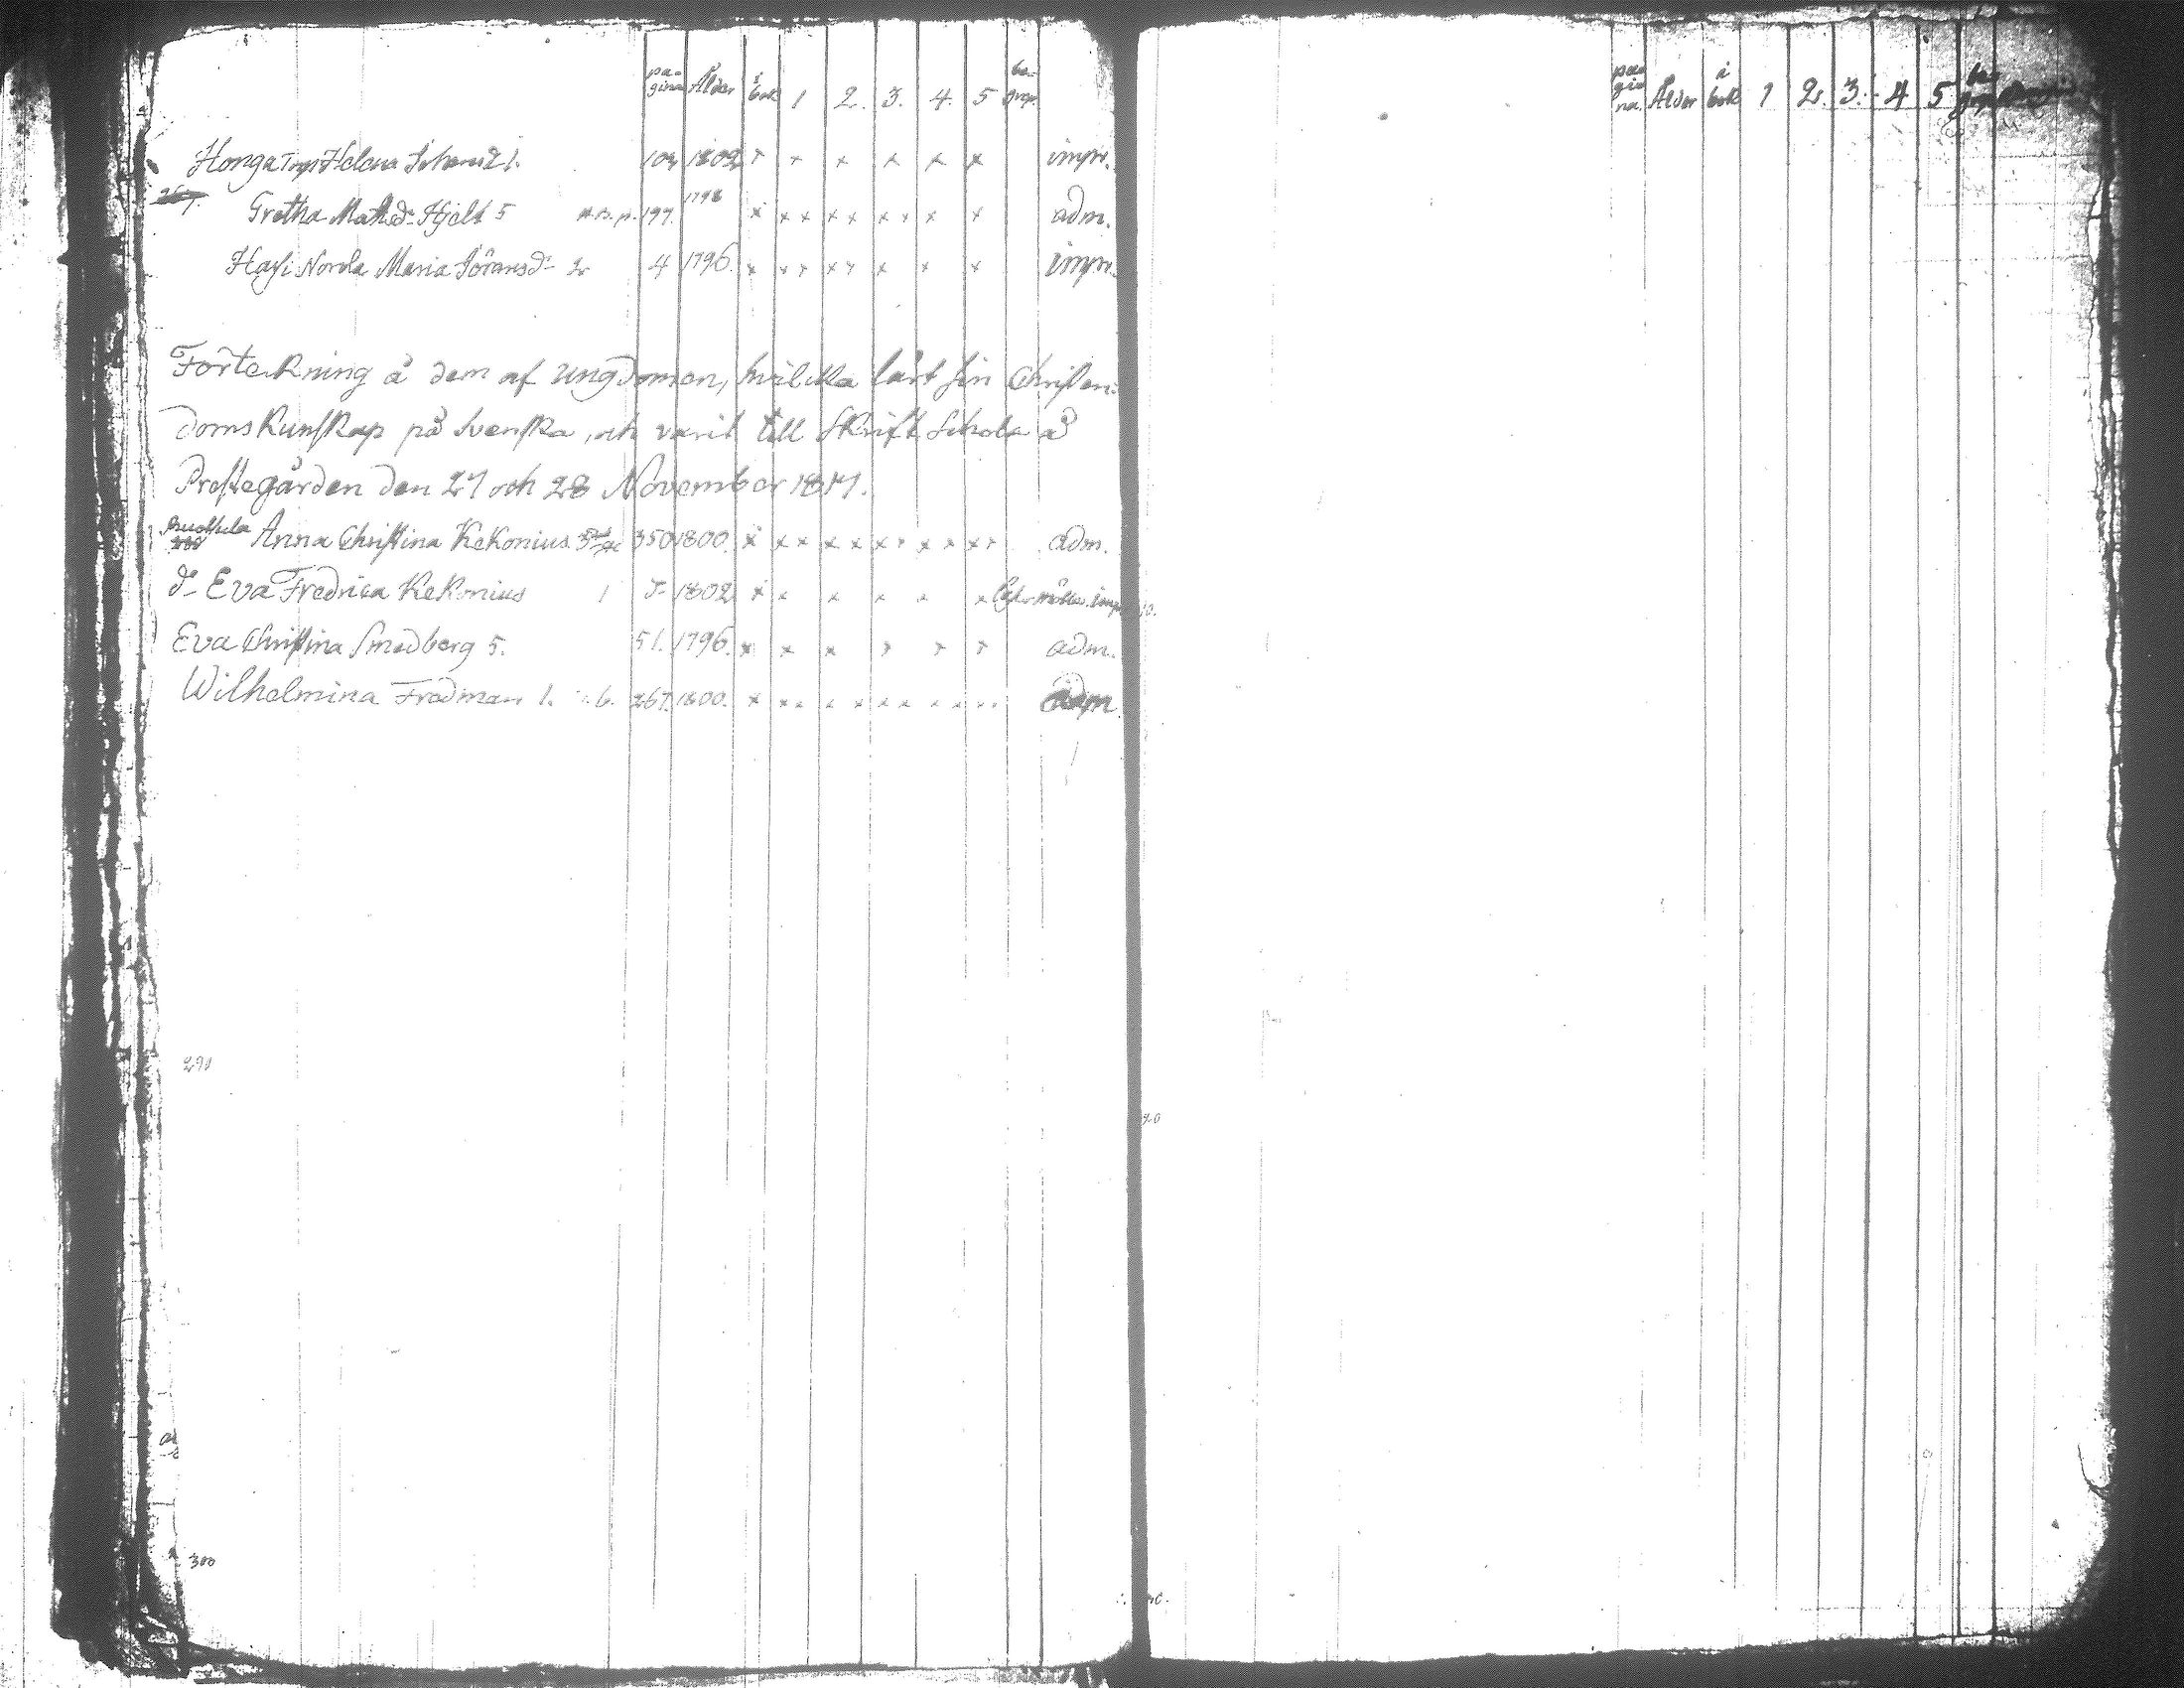 pagina Ålder i bok 1 2. 3. 4. 5 begrep.
Honga Helena 1. 102 1802 x x x x x x impr.
Gretha Matsd:r Hjelt 5 197. 1798 x x x x x x x x x x adm.
Norola Maria Jöransd:r 2 4 1796. x x x x x x x x impr.
Förteckning å dem af Ungdomen, hvilcka lärt sin Christen:
doms Kunskap på Svenska, och varit till Skrift Schola å
Prestegården den 27 och 28 November 1817.
Anna Christina Kekonius 350 1800. x x x x x x x x x x x adm.
d:o Eva Fredrica Kekonius 1 d:o 1802 x x x x x x
Eva Christina Smedberg 5. 51. 1796. x x x x x x adm.
Wilhelmina Fredman 1. 6. 267. 1800. x x x x x x x x x x x adm
290
300
pagina. Ålder i bok 1 2. 3. 4 5 begrep